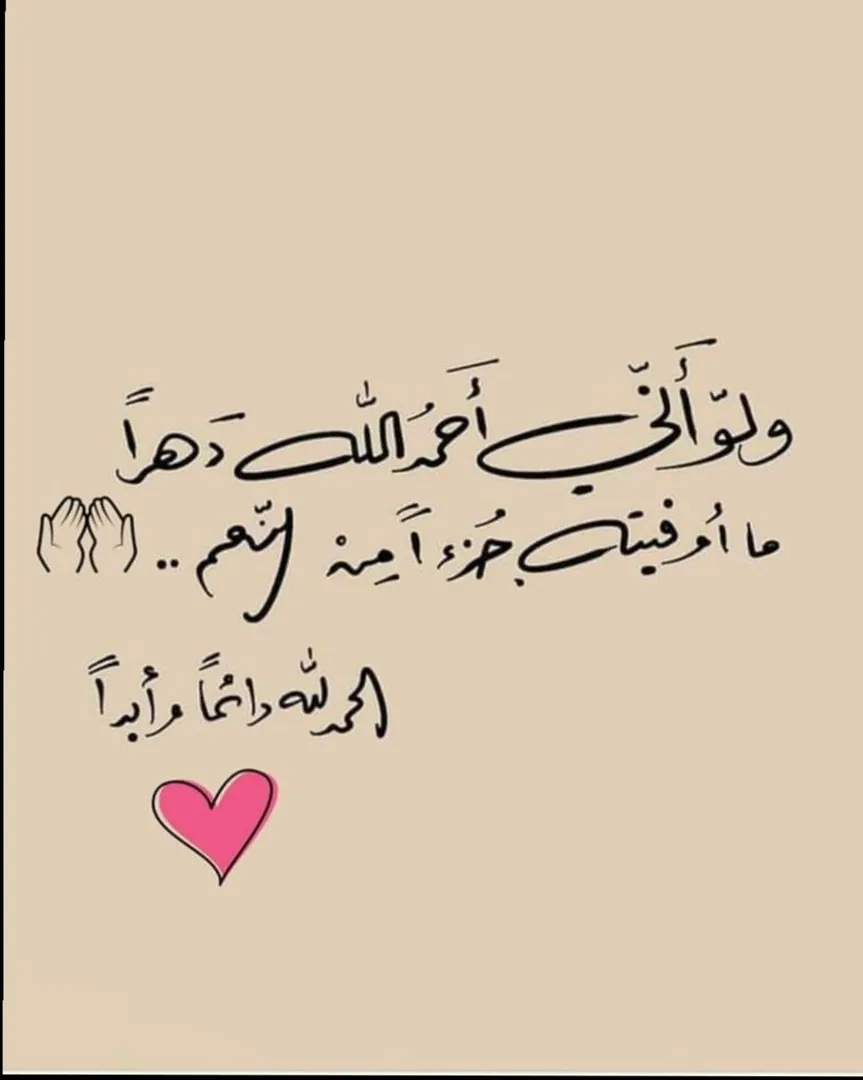 ولوّ أَنّي أَحمُدَ اللّٰه دَهراً
ما أُوفيته جُزءاً مِنْ النّعم ..
الحمدلله دائماً وأبداً